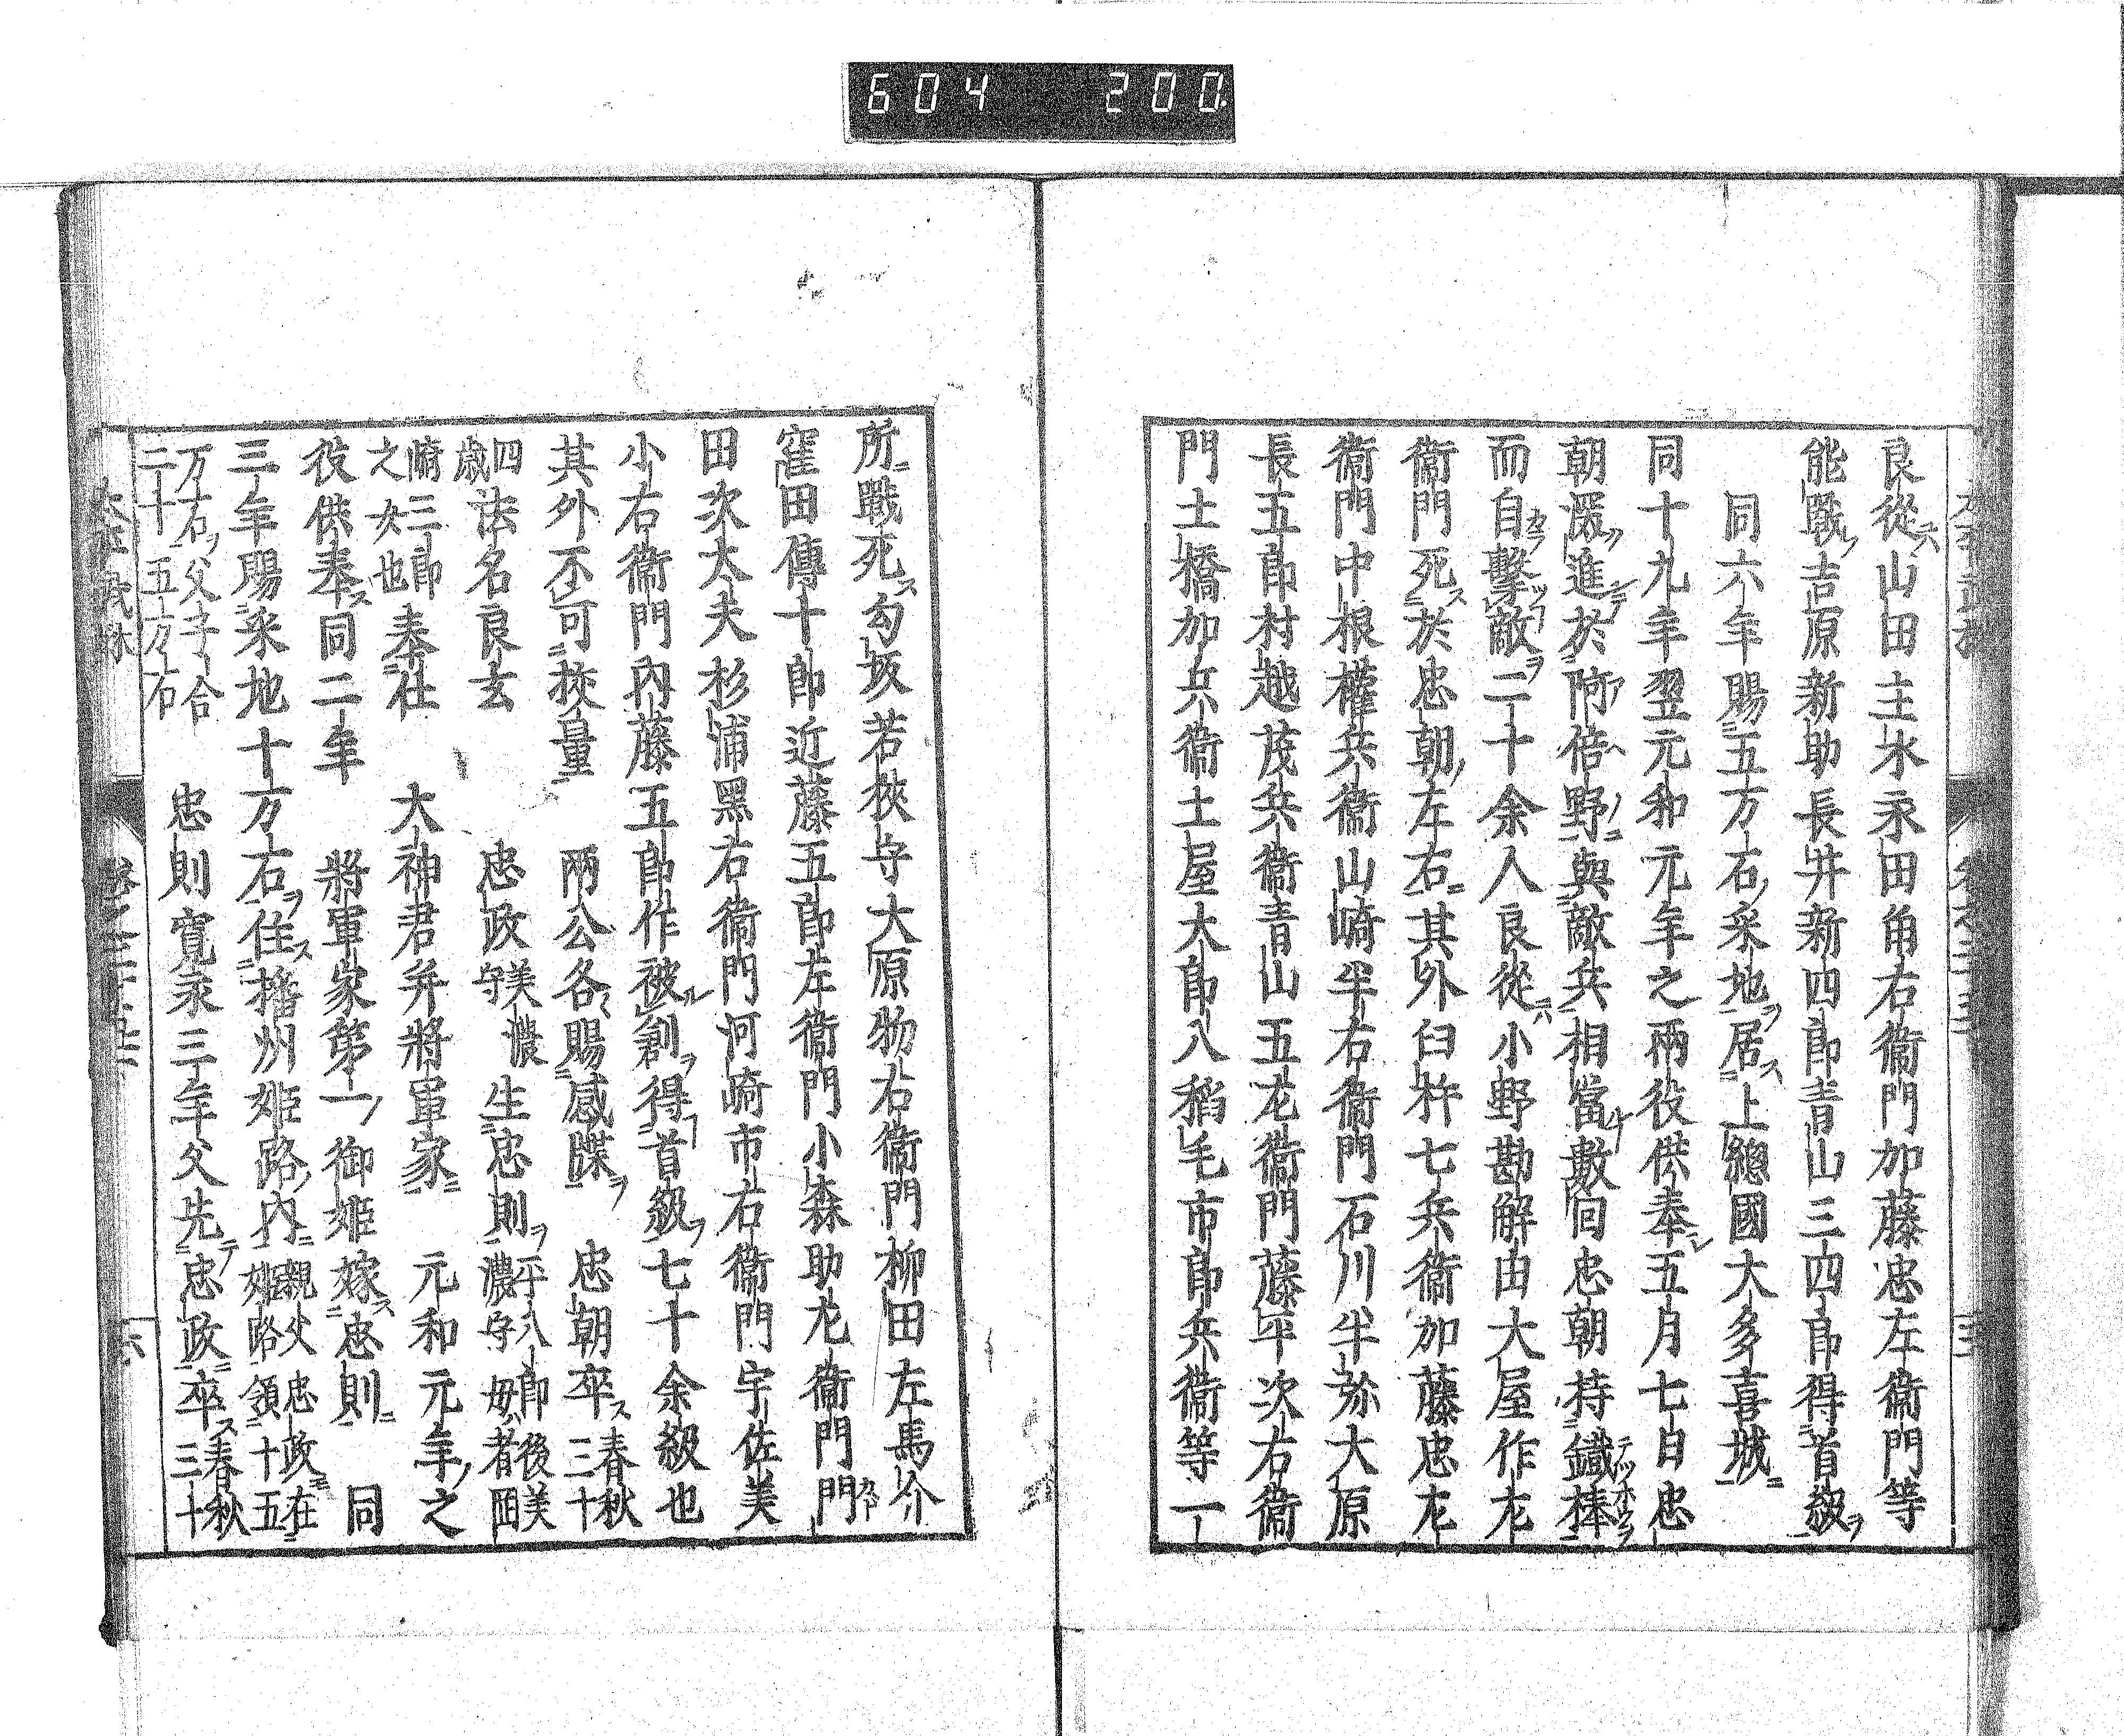 604 200
良從山田主水永田角右衞門加藤忠左衞門等
能戰吉原新助長井新四郎青山三四郎得首級
同六年賜五万石采地居上總國大多喜城
同十九年翌元和元年之兩役供奉五月七日忠
朝深進於阿倍野與敵兵相當數回忠朝持鐵棒
而自擊敵二十余人良從小野勘解由大屋作左
衞門死於忠朝左右其外臼杵七兵衞加藤忠左
衞門中根權兵衞山崎半右衞門石川半弥大原
長五郎村越茂兵衞青山五左衞門藤平次右衞
門土橋加兵衞土屋大郎八稻毛市郎兵衞等一
所戰死勾坂若狹守大原物右衞門柳田左馬介
窪田傳十郎近藤五郎左衞門小森助左衞門門
田次大夫杉浦黑右衞門河崎市右衞門宇佐美
小右衞門內藤五郎作被創得首級七十余級也
其外不可校量 兩公各賜感牒 忠朝卒春秋三十
四歲法名良玄 忠政美濃守生忠則平八郎後美濃守母者岡
崎三郎之女也奉仕 大神君并將軍家 元和元年之
役供奉同二年 將軍家第一御姬嫁忠則 同
三年賜采地十万石住播州姬路內親父忠政在姬路領十五
万石父子合二十五万石 忠則寬永三年父先忠政卒春秋三十
六